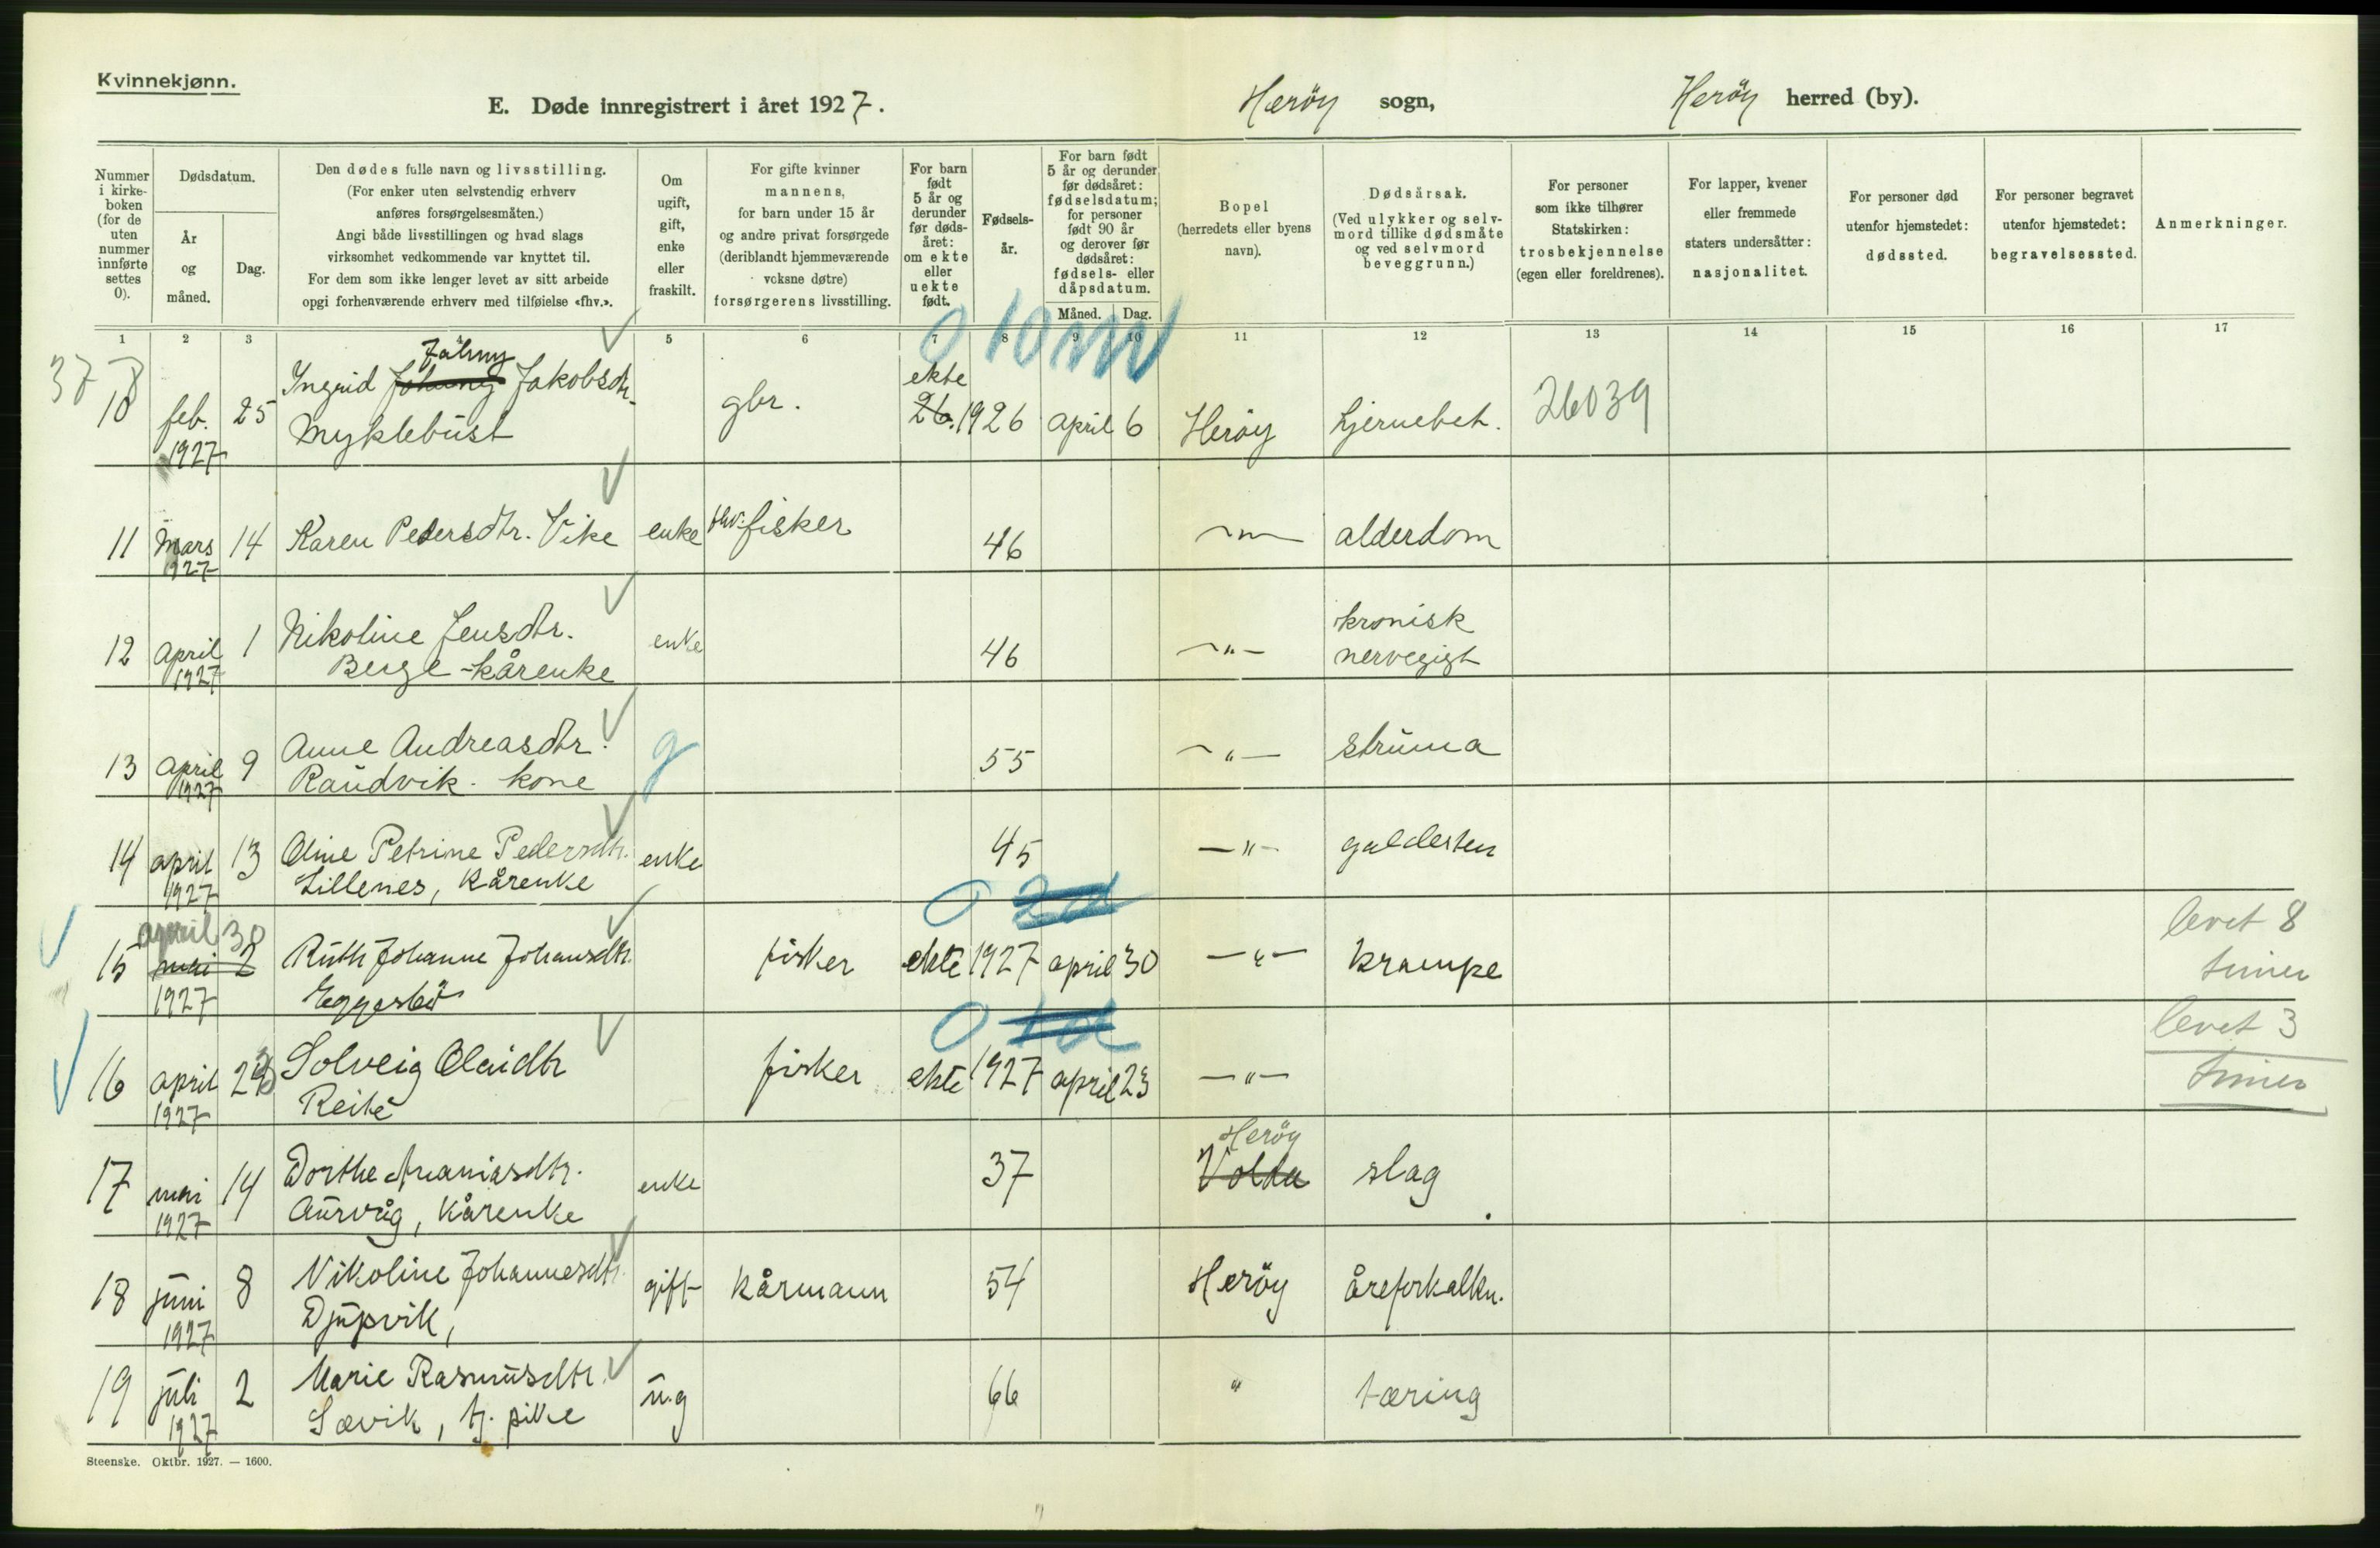 Kvinnekjønn.
E. Døde innregistrert i året 1927. Herøy sogn, Herøy herred (by).
Nummer i kirkeboken (for de uten nummer innførte settes 0).
Dødsdatum.
År og måned.
Dag.
Den dødes fulle navn og livsstilling.
(For enker uten selvstendig erhverv
anføres forsørgelsesmåten.)
Angi både livsstillingen og hvad slags
virksomhet vedkommende var knyttet til.
For dem som ikke lenger levet av sitt arbeide
opgi forhenværende erhverv med tilføielse «fhv.».
Om ugift, gift, enke eller fraskilt.
For gifte kvinner
mannens,
for barn under 15 år
og andre privat forsørgede
(deriblandt hjemmeværende
voksne døtre)
forsørgerens livsstilling.
For barn født 5 år og derunder før dødsåret: om ekte eller uekte født.
Fødselsår.
For barn født
5 år og derunder
før dødsåret:
fødselsdatum;
for personer
født 90 år
og derover før
dødsåret:
fødsels- eller
dåpsdatum.
Måned. Dag.
Bopel
(herredets eller byens
navn).
Dødsårsak.
(Ved ulykker og selvmord tillike dødsmåte
og ved selvmord
beveggrunn.)
For personer
som ikke tilhører
Statskirken:
trosbekjennelse
(egen eller foreldrenes).
For lapper, kvener
eller fremmede
staters undersåtter:
nasjonalitet.
For personer død
utenfor hjemstedet:
dødssted.
For personer begravet
utenfor hjemstedet:
begravelsessted.
Anmerkninger.
1 2 3 4 5 6 7 8 9 10 11 12 13 14 15 16 17
0 10 m
378
10 feb. 1927 25 Ingrid Jakobsdtr. Myklebust gbr. ekte 26. 1926 april 6 Herøy hjernebet. 26039
11 Mars 1927 14 Karen Pedersdtr. Vike enke fhv. fisker 46 —"— alderdom
12 April 1927 1 Nikoline Jensdtr. Berge - kårenke enke 46 —"— kronisk nervegigt
13 April 1927 9 Anne Andreasdtr. Raudvik. kone g 55 —"— struma
14 april 1927 13 Oline Petrine Pedersdtr. Lillenes, Kårenke enke 45 —"— galdesten
0 2 d
15 april 30 mai 2 1927 Ruth Johanne Johansdtr. Eggesbø fisker ekte 1927 april 30 —"— krampe levet 8 timer
0 1 d
16 april 1927 23 Solveig Olaidtr Reite fisker ekte 1927 april 23 —"— levet 3 timer
17 mai 1927 14 Dorthe Ananiasdtr. Aurvåg, Kårenke enke 37 Herøy Volda slag
18 juni 1927 8 Nikoline Johannesdtr. Djupvik, gift kårmann 54 Herøy åreforkalkn.
19 juli 1927 2 Marie Rasmusdtr. Sævik, tj. pike ug 66 " tæring
Steenske. Oktbr. 1927. — 1600.